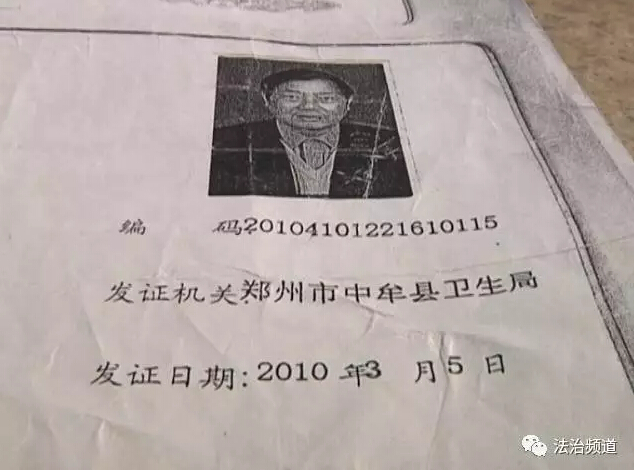 编 码20104101221610115
发证机关:郑州市中牟县卫生局
发证日期:2010 年3 月5 日
法治频道